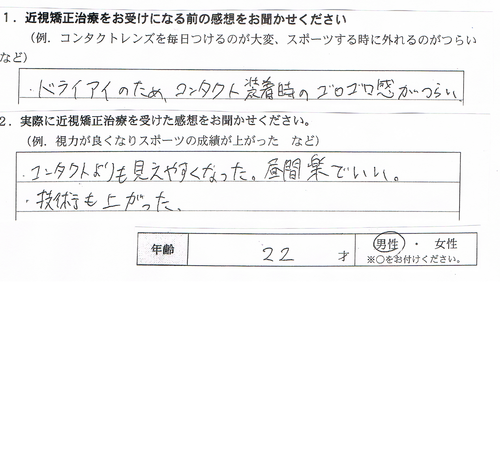 1．近視矯正治療をお受けになる前の感想をお聞かせください
（例．コンタクトレンズを毎日つけるのが大変、スポーツする時に外れるのがつらい
など）
・ドライアイのため、コンタクト装着時のゴロゴロ感がつらい。
2．実際に近視矯正治療を受けた感想をお聞かせください。
（例．視力が良くなりスポーツの成績が上がった　など）
・コンタクトよりも見えやすくなった。昼間楽でいい。
・技術も上がった。
年齢 22 才 男性 ・ 女性
※〇をお付けください。